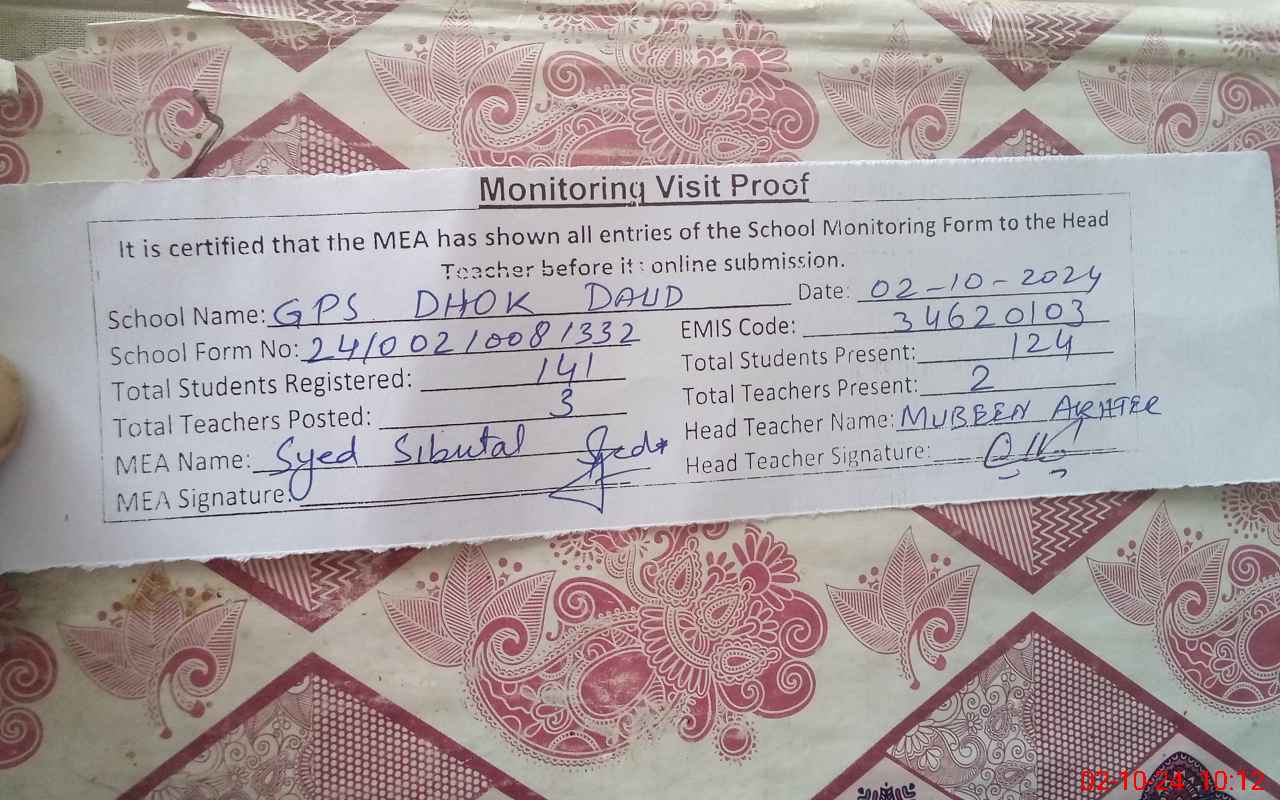 Monitoring Visit Proof
It is certified that the MEA has shown all entries of the School Monitoring Form to the Head
Teacher before its online submission.
School Name: GPS DHOK DAUD Date: 02-10-2024
School Form No: 24/002/0081332 EMIS Code: 34620103
Total Students Registered: 141 Total Students Present: 124
Total Teachers Posted: 3 Total Teachers Present: 2
MEA Name: Syed Sibutal Head Teacher Name: MUBEEN AKHTER
MEA Signature: Head Teacher Signature:
02-10-24 10:12